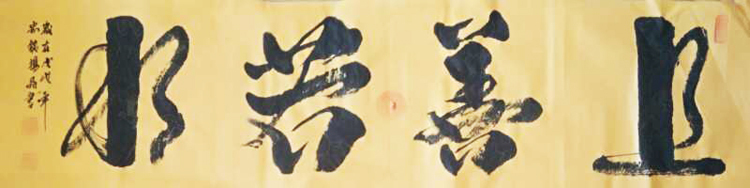 上善若水
歲在戊戌年